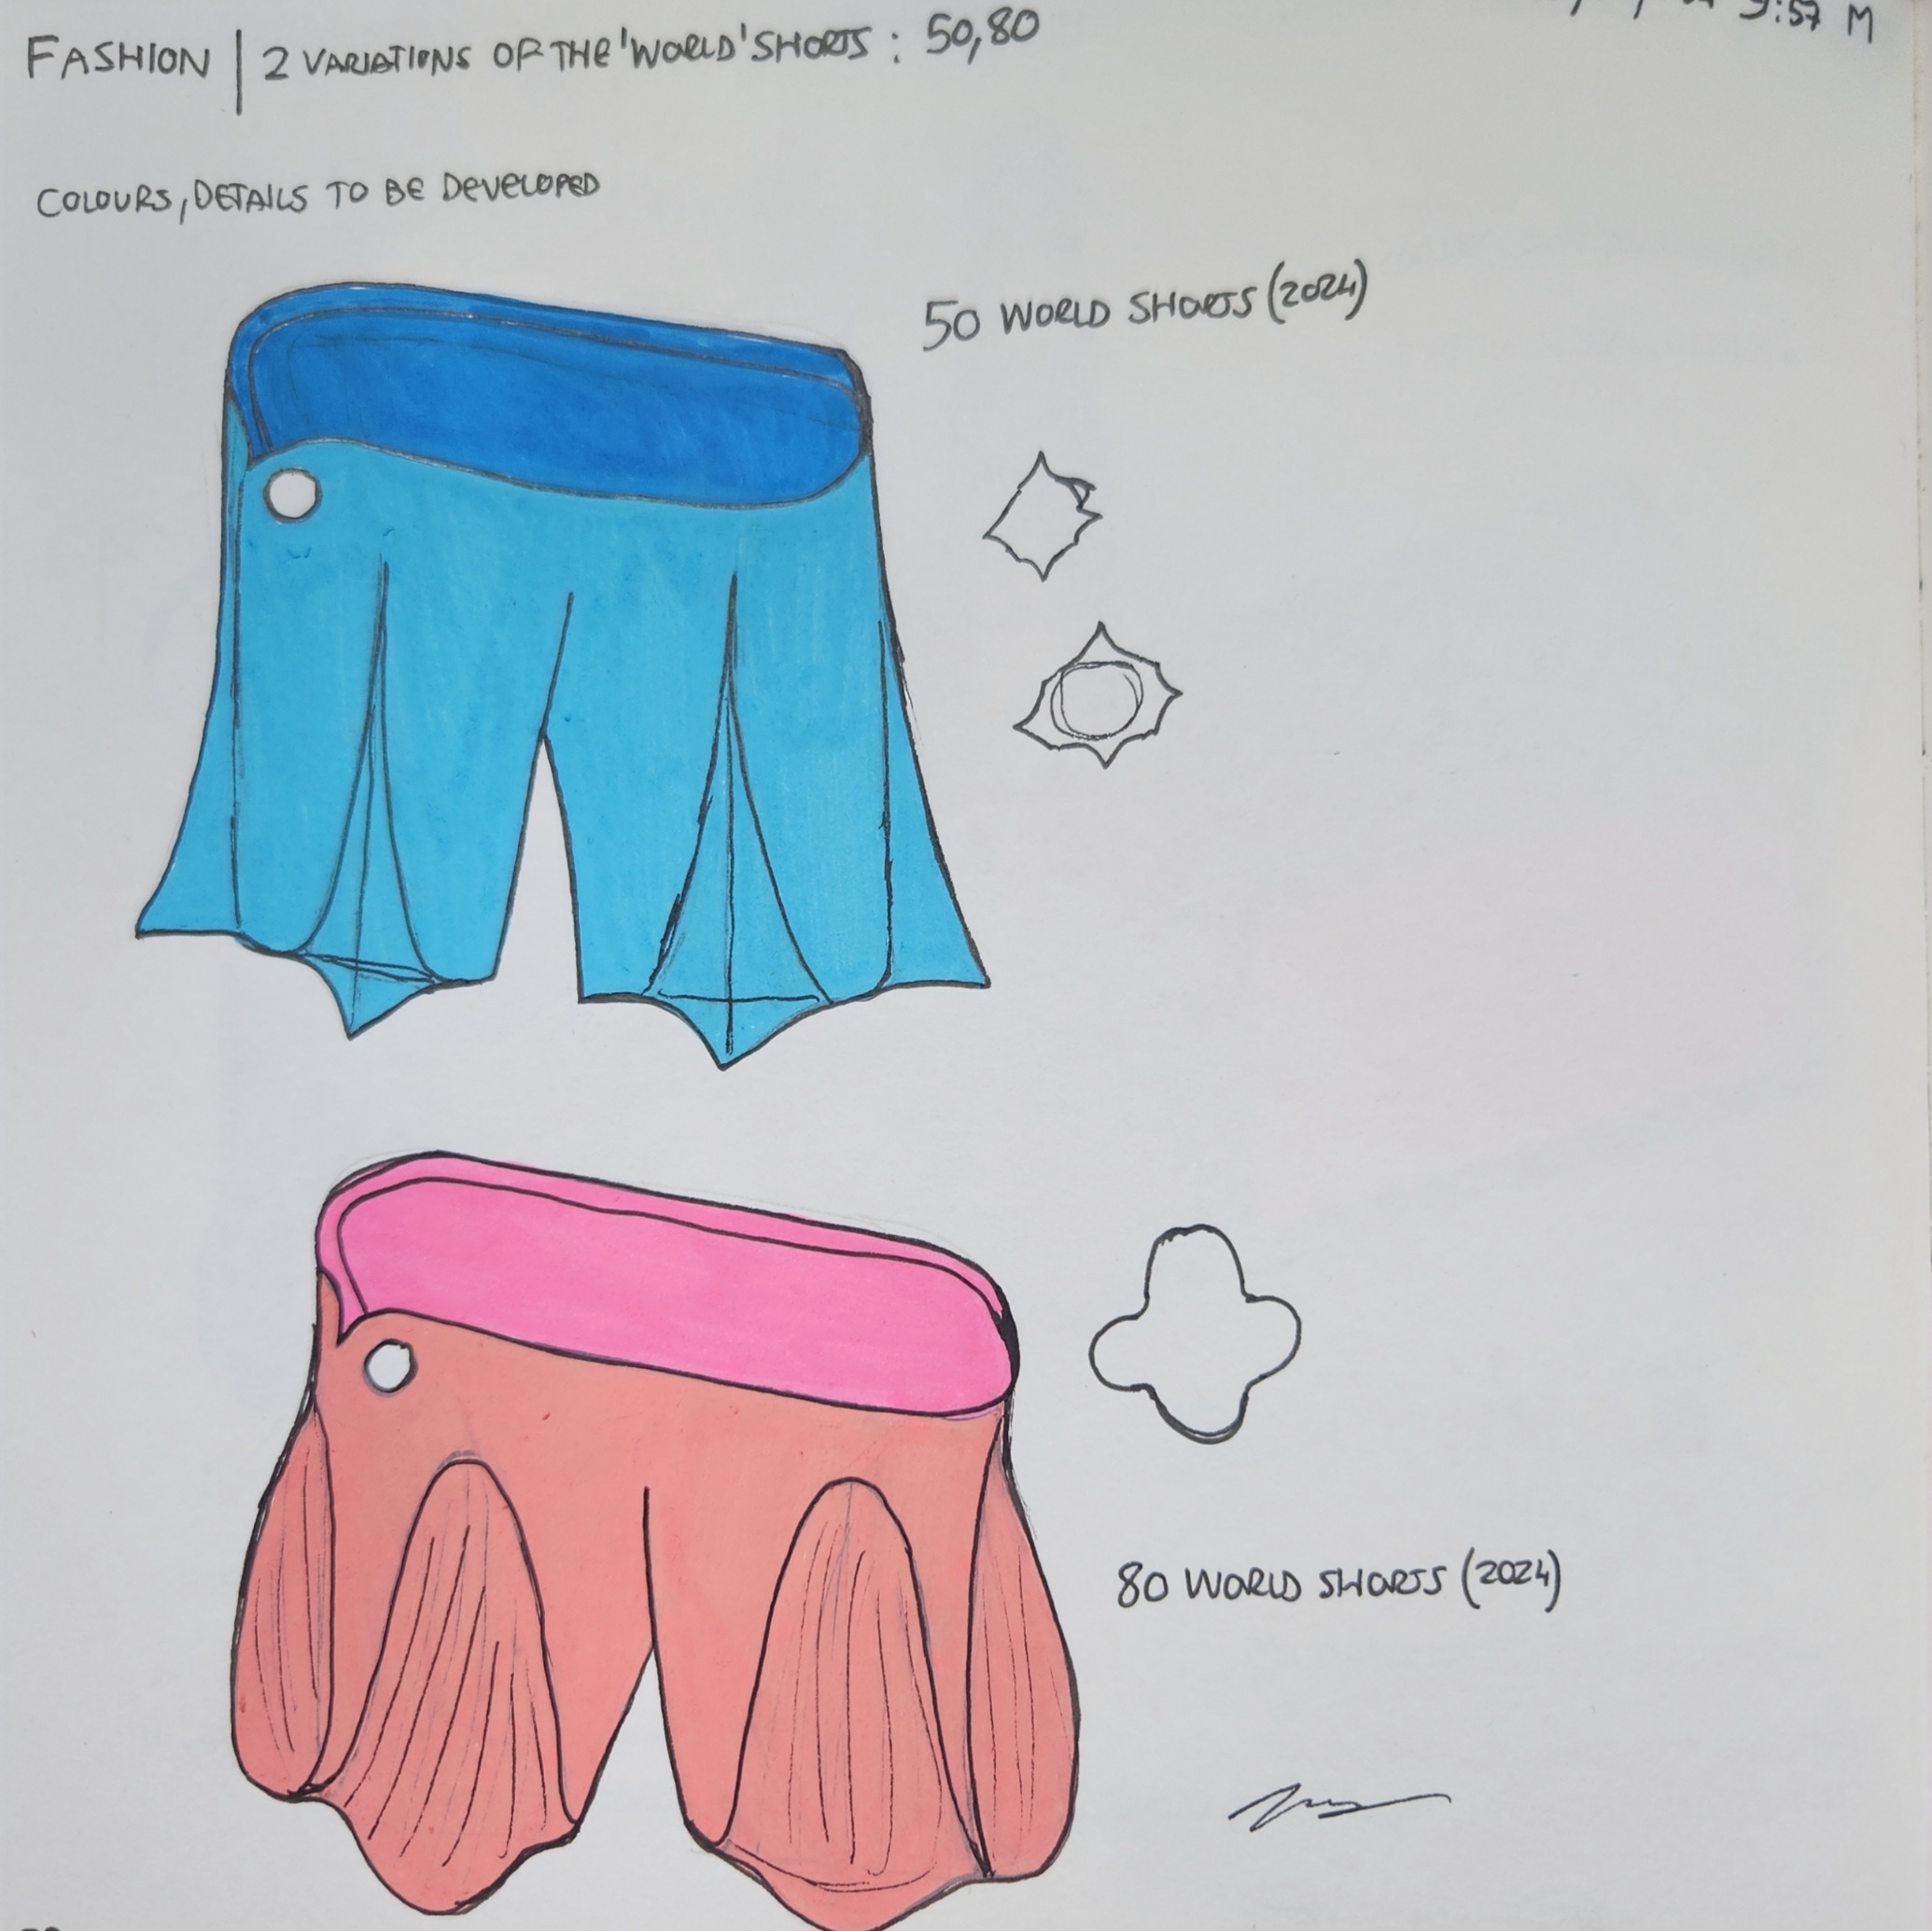 FASHION | 2 VARIATIONS OF THE 'WORLD' SHORTS : 50,80
:57 M
COLOURS, DETAILS TO BE DEVELOPED
50 WORLD SHORTS (2024)
80 WORLD SHORTS (2024)